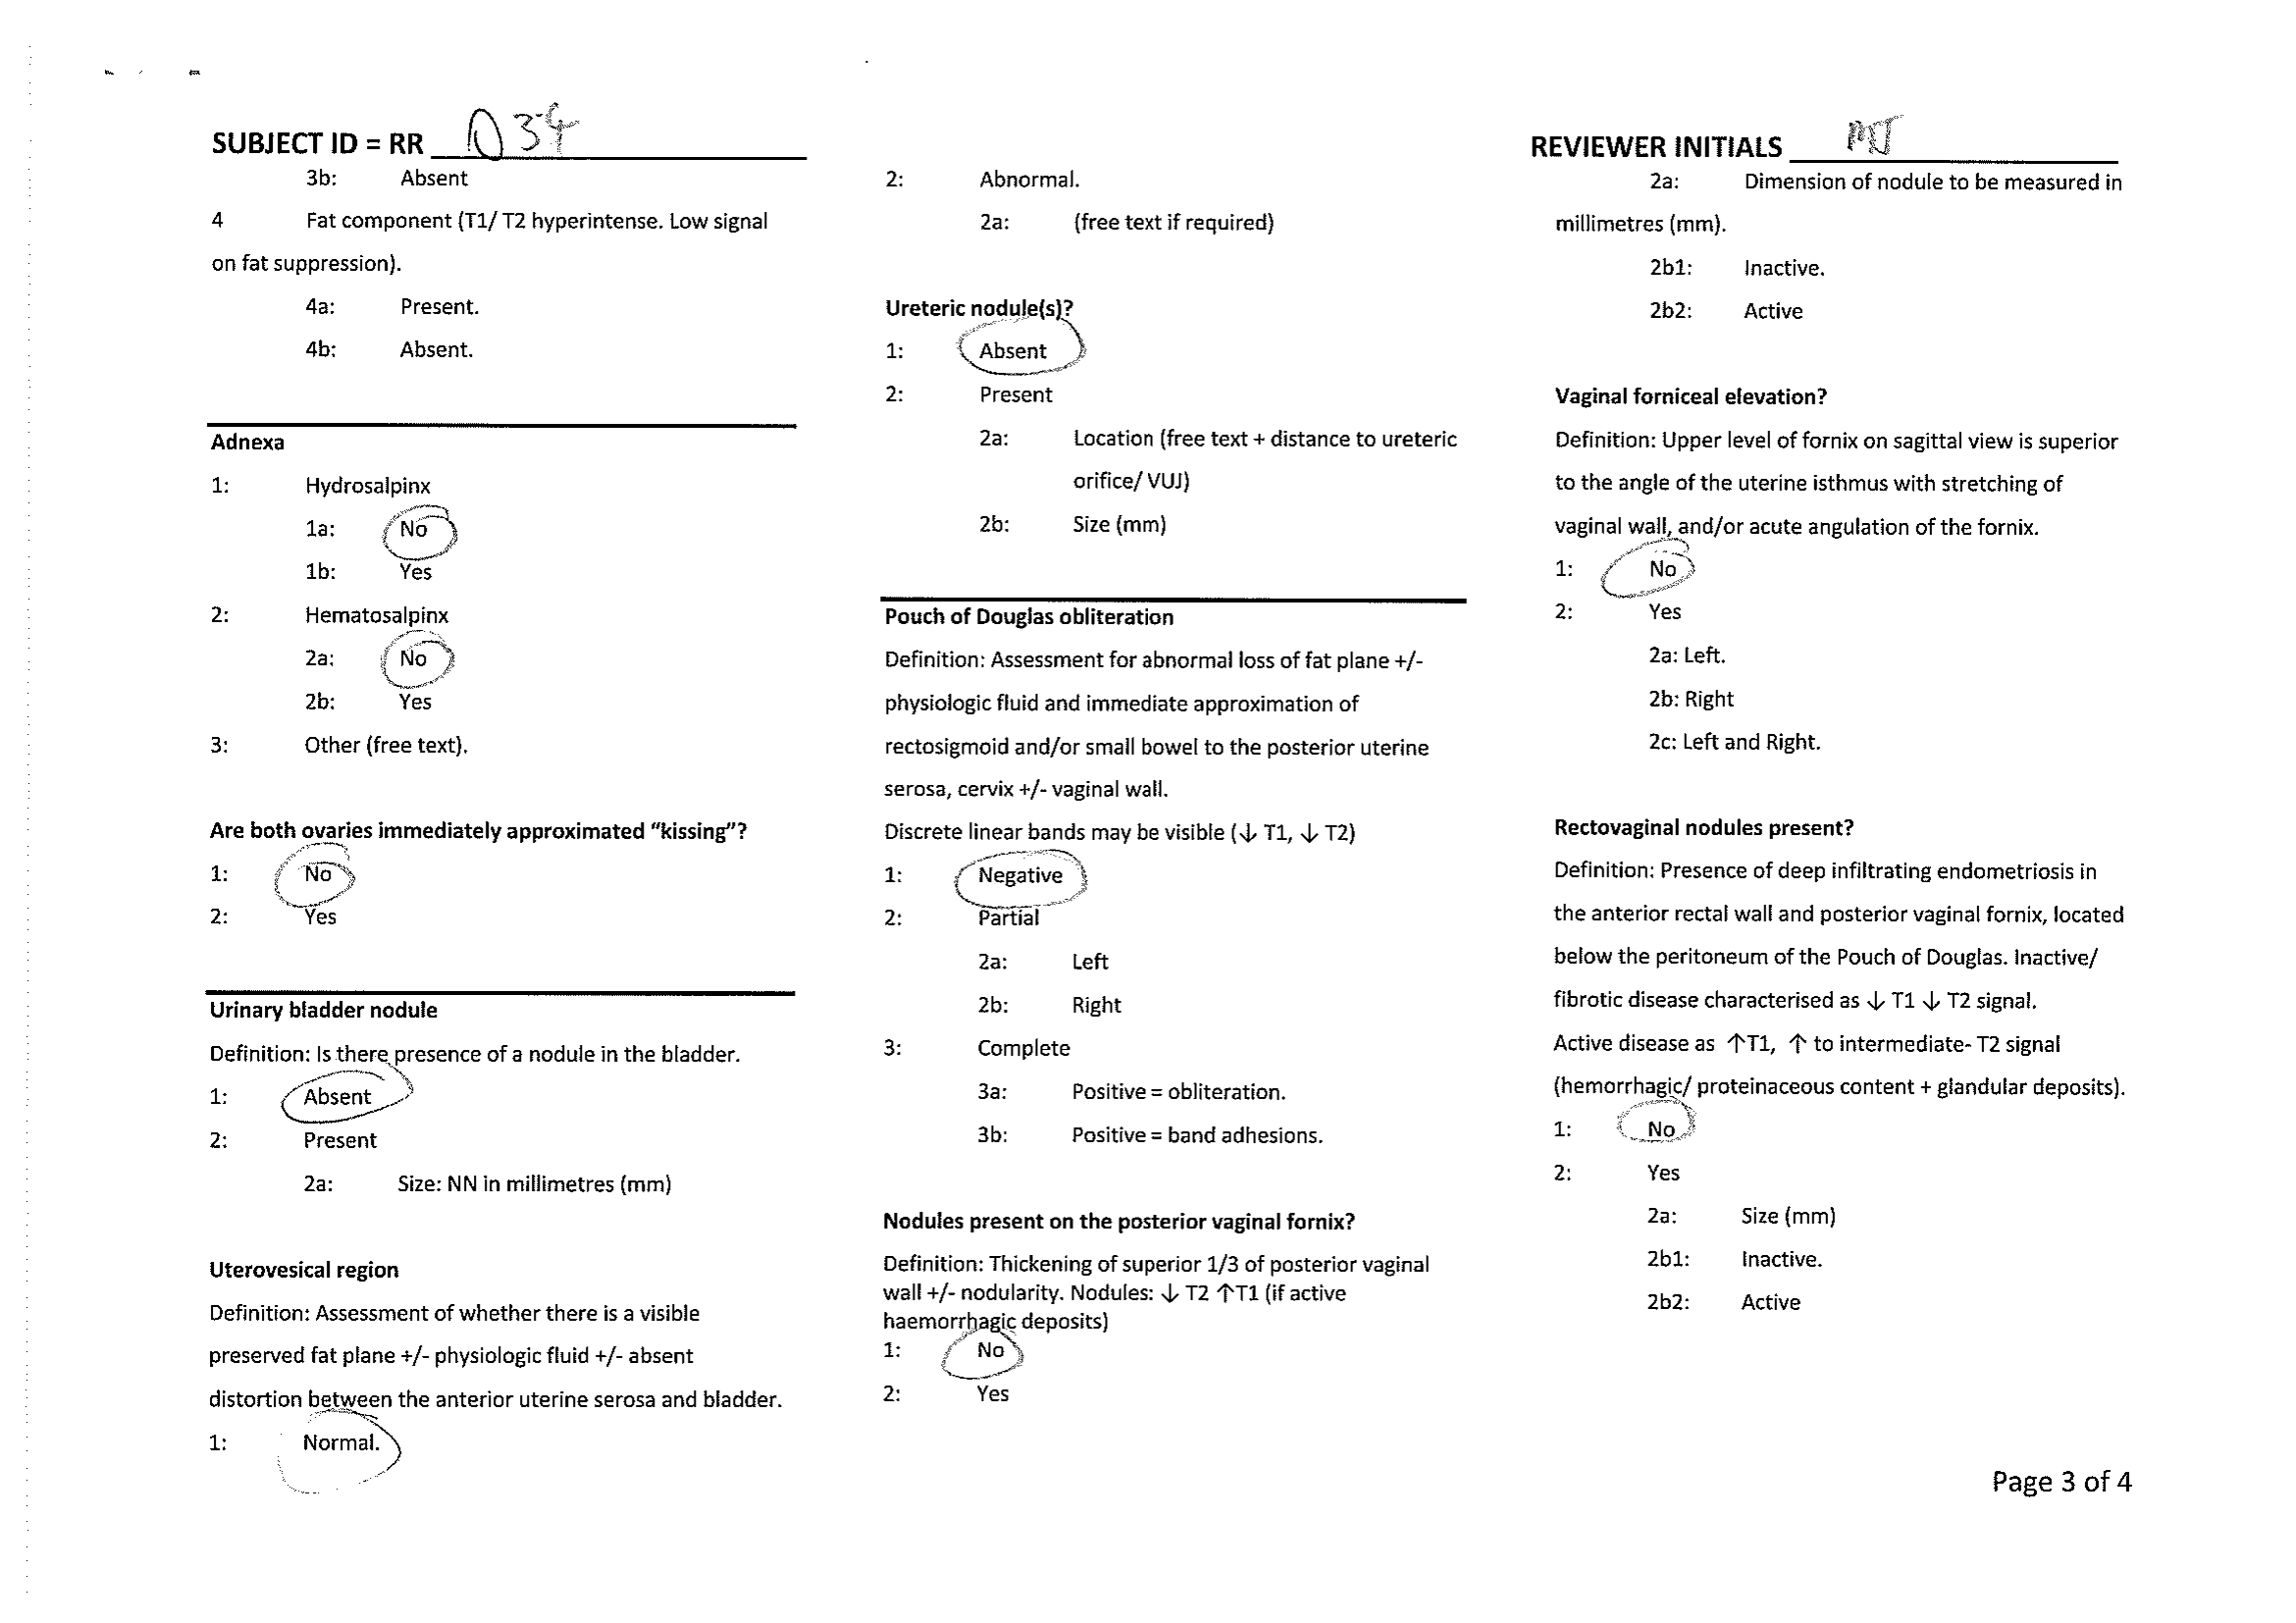 SUBJECT ID = RR 034
3b: Absent
4 Fat component (T1/ T2 hyperintense. Low signal
on fat suppression).
4a: Present.
4b: Absent.
Adnexa
1: Hydrosalpinx
1a: No
1b: Yes
2: Hematosalpinx
2a: No
2b: Yes
3: Other (free text).
Are both ovaries immediately approximated “kissing”?
1: No
2: Yes
Urinary bladder nodule
Definition: Is there presence of a nodule in the bladder.
1: Absent
2: Present
2a: Size: NN in millimetres (mm)
Uterovesical region
Definition: Assessment of whether there is a visible
preserved fat plane +/- physiologic fluid +/- absent
distortion between the anterior uterine serosa and bladder.
1: Normal.
2: Abnormal.
2a: (free text if required)
Ureteric nodule(s)?
1: Absent
2: Present
2a: Location (free text + distance to ureteric
orifice/ VUJ)
2b: Size (mm)
Pouch of Douglas obliteration
Definition: Assessment for abnormal loss of fat plane +/-
physiologic fluid and immediate approximation of
rectosigmoid and/or small bowel to the posterior uterine
serosa, cervix +/- vaginal wall.
Discrete linear bands may be visible (↓ T1, ↓ T2)
1: Negative
2: Partial
2a: Left
2b: Right
3: Complete
3a: Positive = obliteration.
3b: Positive = band adhesions.
Nodules present on the posterior vaginal fornix?
Definition: Thickening of superior 1/3 of posterior vaginal
wall +/- nodularity. Nodules: ↓ T2 ↑T1 (if active
haemorrhagic deposits)
1: No
2: Yes
REVIEWER INITIALS
2a: Dimension of nodule to be measured in
millimetres (mm).
2b1: Inactive.
2b2: Active
Vaginal forniceal elevation?
Definition: Upper level of fornix on sagittal view is superior
to the angle of the uterine isthmus with stretching of
vaginal wall, and/or acute angulation of the fornix.
1: No
2: Yes
2a: Left.
2b: Right
2c: Left and Right.
Rectovaginal nodules present?
Definition: Presence of deep infiltrating endometriosis in
the anterior rectal wall and posterior vaginal fornix, located
below the peritoneum of the Pouch of Douglas. Inactive/
fibrotic disease characterised as ↓ T1 ↓ T2 signal.
Active disease as ↑T1, ↑ to intermediate- T2 signal
(hemorrhagic/ proteinaceous content + glandular deposits).
1: No
2: Yes
2a: Size (mm)
2b1: Inactive.
2b2: Active
Page 3 of 4